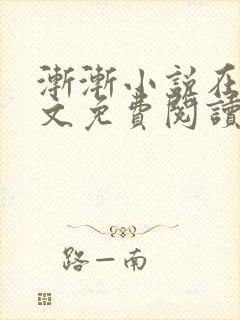 漸漸小說在
文免費閱讀
路一南